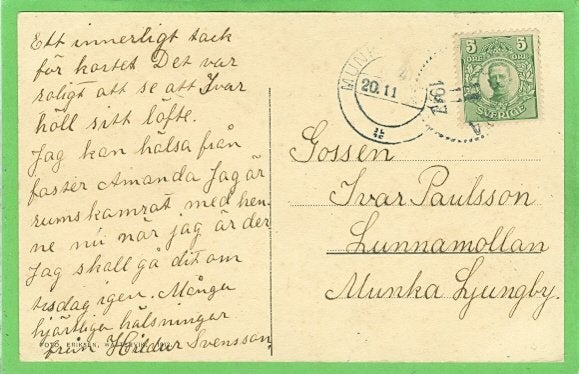 Ett innerligt tack
för kortet Det var
roligt att se att Ivar
höll sitt löfte.
Jag kan hälsa från
faster Amanda Jag är
rumskamrat med hen-
ne nu när jag är der
Jag skall gå dit om
tisdag igen. Många
hjärtliga hälsningar
från Hildur Svensson.
FOTO. ERIKSEN,
MUN
20.11
1917
11
5 5
ÖRE ÖRE
SVERIGE
Gossen
Ivar Paulsson
Lunnamollan
Munka Ljungby.